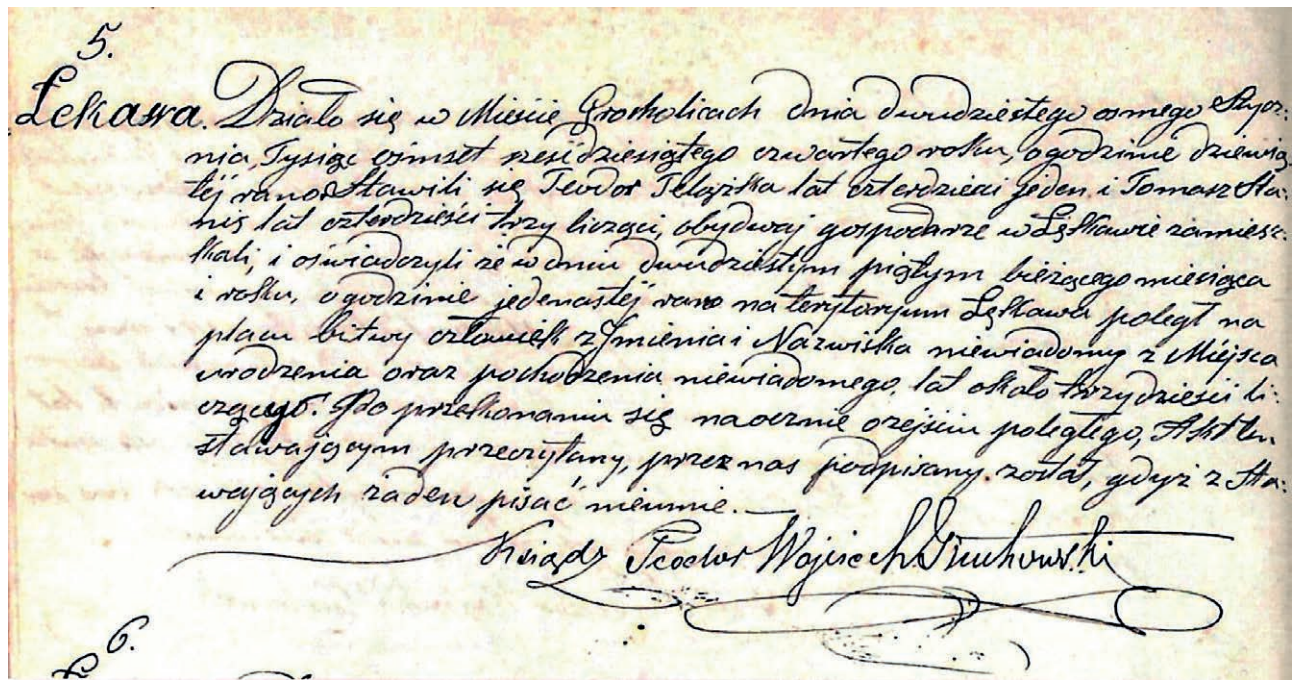 5.
Łękawa. Działo się w Mieście Grocholicach dnia dwudziestego osmego Stycz:
nia, Tysiąc ośmset sześćdziesiątego czwartego roku, o godzinie dziewią
tej rano Stawili się Teodor Telążka lat czterdzieści jeden i Tomasz Sta:
nis lat czterdzieści trzy liczący, obydwaj gospodarze w Łękawie zamiesz:
kali, i oświadczyli że w dniu dwudziestym piątym bieżącego miesiąca
i roku, o godzinie jedenastej rano na terytoryum Łękawa poległ na
placu bitwy człowiek z Imienia i Nazwiska niewiadomy z Miejsca
urodzenia oraz pochodzenia niewiadomego, lat około trzydzieści li:
czącego. Po przekonaniu się naocznie o zejściu poległego, Akt ten
stawającym przeczytany, przez nas podpisany został, gdyż z Sta:
wających żaden pisać nieumie.
Ksiądz Teodor Wojciech
6.